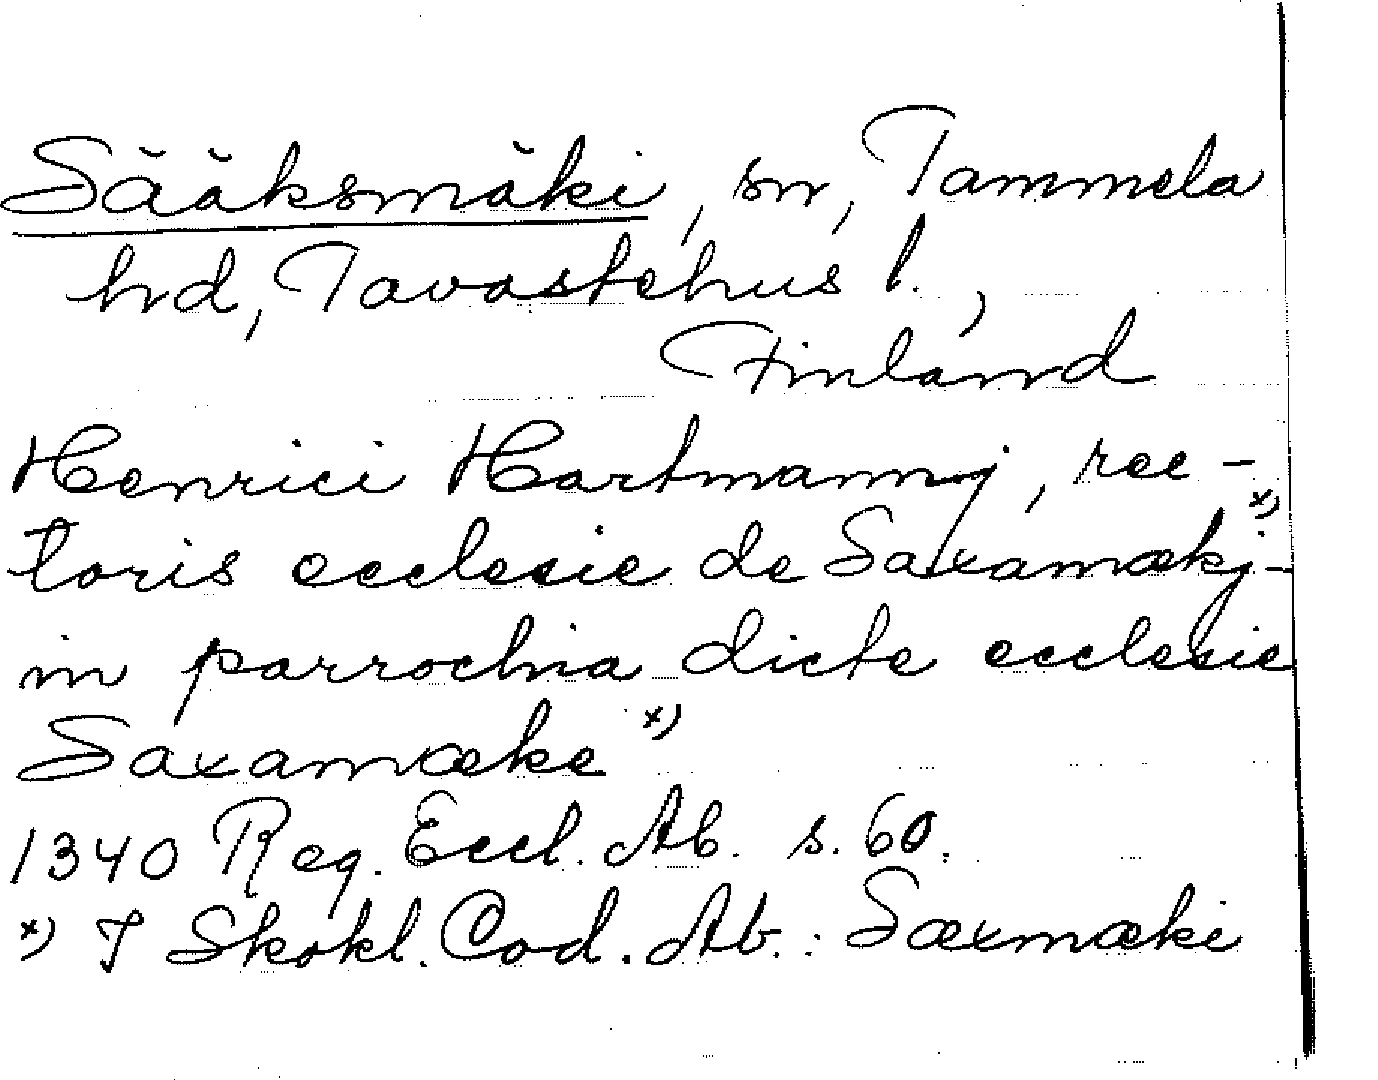 Sääksmäki, sn, Tammela
hd, Tavastehus l.,
Finland
Henrici Hartmannj, rec-
toris ecclesie de Saxamækj -x)
in parrochia dicte ecclesie
Saxamæke x)
1340 Reg. Eccl. Ab. s. 60.
x) I Skokl. Cod. Ab.: Sæxmæki